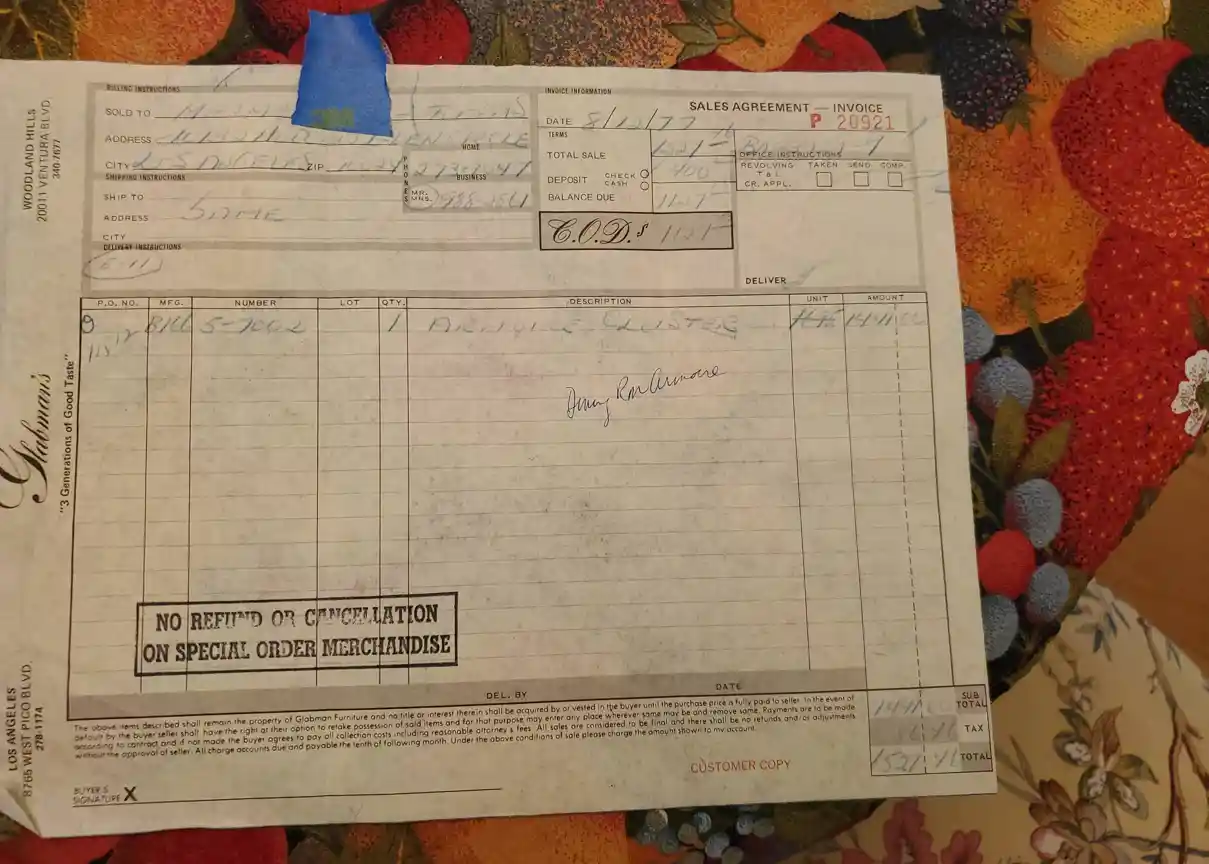 BILLING INSTRUCTIONS
SOLD TO
ADDRESS
CITY LOS ANGELES ZIP
HOME
PHONES
BUSINESS
MR.
MRS.
SHIPPING INSTRUCTIONS
SHIP TO
ADDRESS SAME
CITY
DELIVERY INSTRUCTIONS
E-11
INVOICE INFORMATION
SALES AGREEMENT — INVOICE
DATE 8/12/77 P 20921
TERMS
TOTAL SALE
DEPOSIT CHECK CASH 400
BALANCE DUE
C.O.D.s
OFFICE INSTRUCTIONS
REVOLVING TAKEN SEND COMP.
T & L
CR. APPL.
DELIVER
P.O. NO. MFG. NUMBER LOT QTY. DESCRIPTION UNIT AMOUNT
5-7002 1 CLUSTER
Dining Rm Armoire
NO REFUND OR CANCELLATION
ON SPECIAL ORDER MERCHANDISE
DEL. BY DATE
The above items described shall remain the property of Glabman Furniture and no title or interest therein shall be acquired by or vested in the buyer until the purchase price is fully paid to seller. In the event of
default by the buyer seller shall have the right at their option to retake possession of said items and for that purpose may enter any place wherever same may be and remove same. Payments are to be made
according to contract and if not made the buyer agrees to pay all collection costs including reasonable attorney's fees. All sales are considered to be final and there shall be no refunds and/or adjustments
without the approval of seller. All charge accounts due and payable the tenth of following month. Under the above conditions of sale please charge the amount shown to my account.
SUB TOTAL
TAX
TOTAL 1521 46
CUSTOMER COPY
BUYER'S
SIGNATURE X
WOODLAND HILLS
20011 VENTURA BLVD.
340-7677
Glabman's
"3 Generations of Good Taste"
LOS ANGELES
8765 WEST PICO BLVD.
278-1174